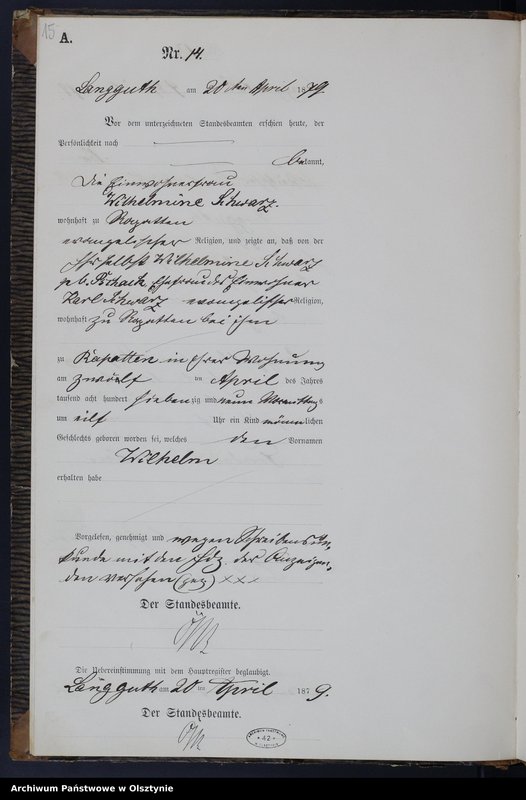 15
A.
Nr. 14.
Langguth am 20 ten April 1879.
Vor dem unterzeichneten Standesbeamten erschien heute, der
Persönlichkeit nach
bekannt,
die Einwohnerfrau
Wilhelmine Schwarz
wohnhaft zu Rapatten
evangelischer Religion, und zeigte an, daß von der
Wilhelmine Schwarz
geb. Ehefrau des Einwohner
Karl Schwarz evangelischer Religion,
wohnhaft zu Rapatten bei ihm
zu Rapatten in ihrer Wohnung
am zwölf ten April des Jahres
tausend acht hundert siebenzig und neun Vormittags
um eilf Uhr ein Kind männlichen
Geschlechts geboren worden sei, welches den Vornamen
Wilhelm
erhalten habe
Vorgelesen, genehmigt und wegen Schreibensun-
kunde mit den Hdz. der Anzeigen-
den versehen (gez) XXX
Der Standesbeamte.
Die Uebereinstimmung mit dem Hauptregister beglaubigt.
Langguth am 20 ten April 1879.
Der Standesbeamte.
ARCHIWUM PAŃSTWOWE
* 42 *
W OLSZTYNIE
Archiwum Państwowe w Olsztynie